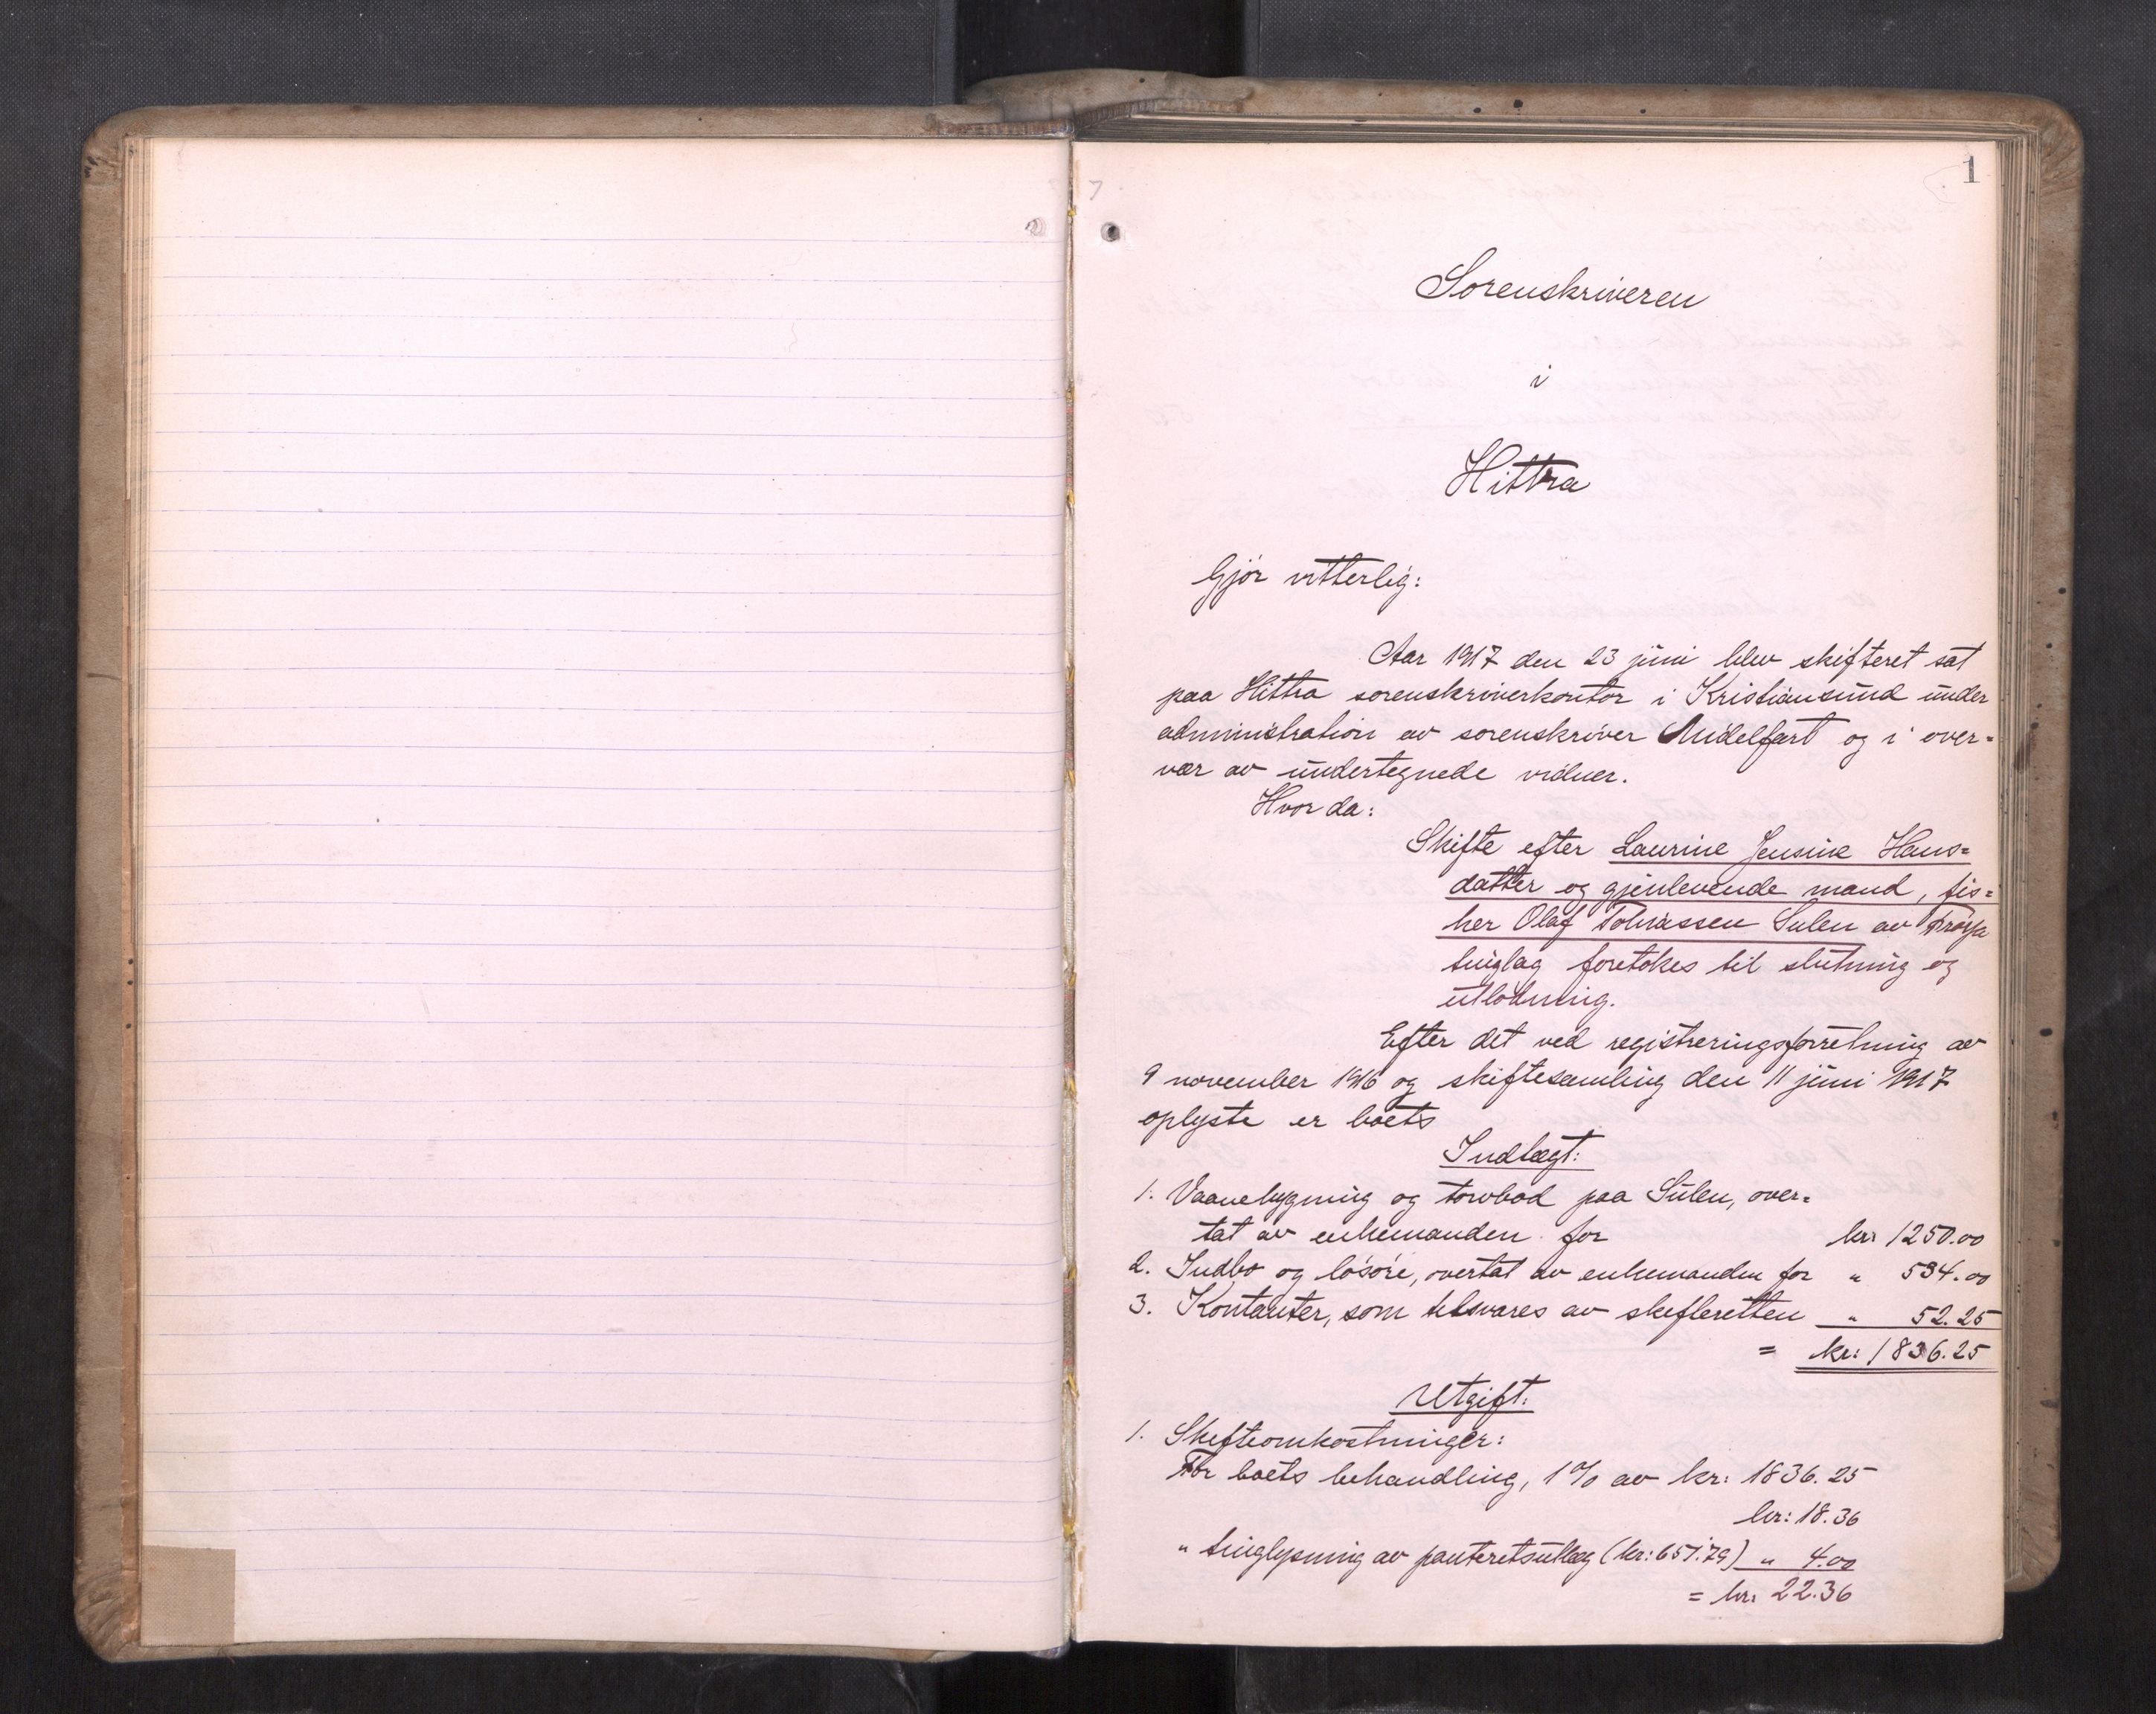 1
Sorenskriveren
i
Hittra
Gjør vitterlig:
Aar 1917 den 23 juni blev skifteret sat
paa Hittra sorenskriverkontor i Kristiansund under
administration av sorenskriver Midelfart og i over-
vær av undertegnede vidner.
Hvor da:
Skifte efter Laurine Jensine Hans-
datter og gjenlevende mand, fis-
ker Olaf Tomassen Sulen av Frøya
tinglag foretokes til slutning og
utlodning.
Efter det ved registreringsforretning av
9 november 1916 og skiftesamling den 11 juni 1917
oplyste er boets
Indtægt:
1. Vaanebygning og torvbod paa Sulen, over-
tat av enkemanden for kr: 1250.00
2. Indbo og løsøre, overtat av enkemanden for " 534.00
3. Kontanter, som tilsvares av skifteretten " 52.25
= kr: 1836.25
Utgift:
1. Skifteomkostninger:
For boets behandling, 1 % av kr: 1836.25
kr: 18.36
" tinglysning av panteretsutlæg (kr: 651.79) " 4.00
= kr: 22.36